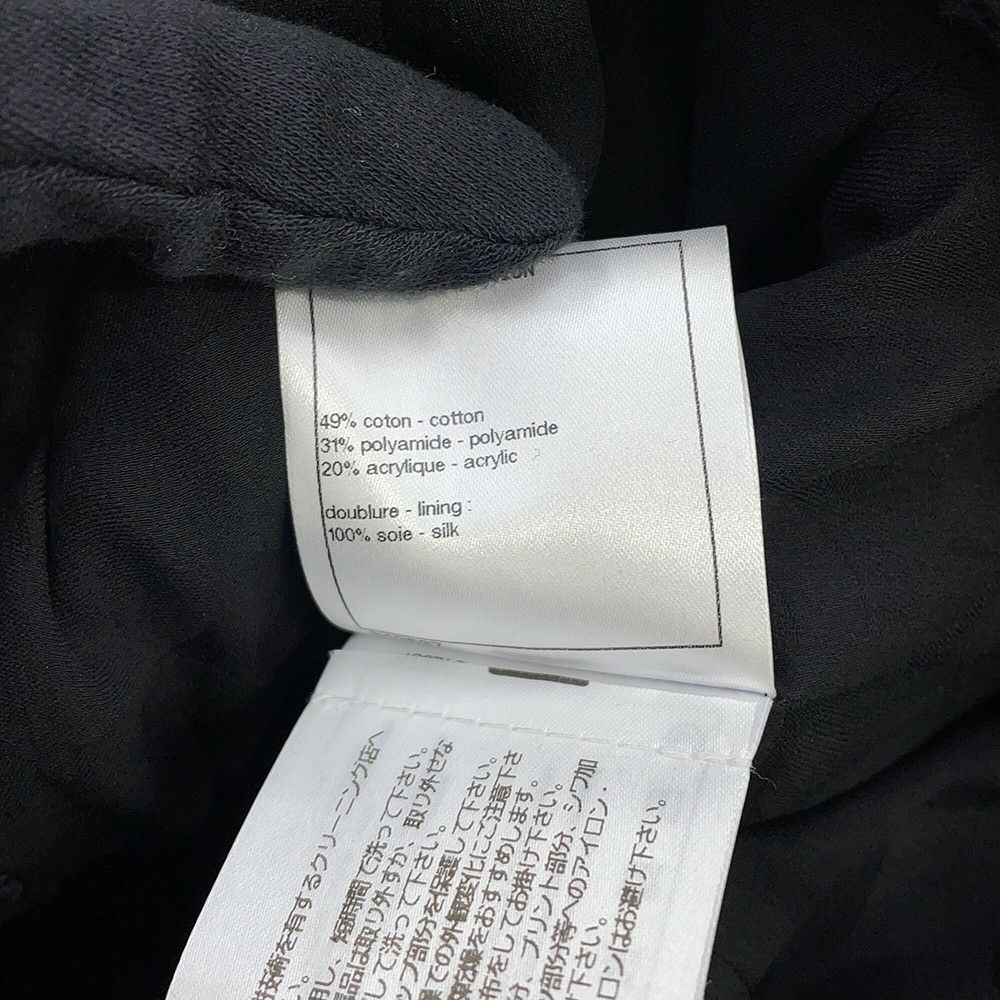 49% coton - cotton
31% polyamide - polyamide
20% acrylique - acrylic
doublure - lining :
100% soie - silk
技術を有するクリーニング店へ
用し、短時間で洗って下さい。
品は取り外すか、取り外せな
して洗って下さい。
ップ部分を保護して下さい。
での外観変化にご注意下さ
をおすすめします。
布をしてお掛け下さい。
分、プリント部分、シワ加
部分等へのアイロン.
下さい。
ロンはお避け下さい。